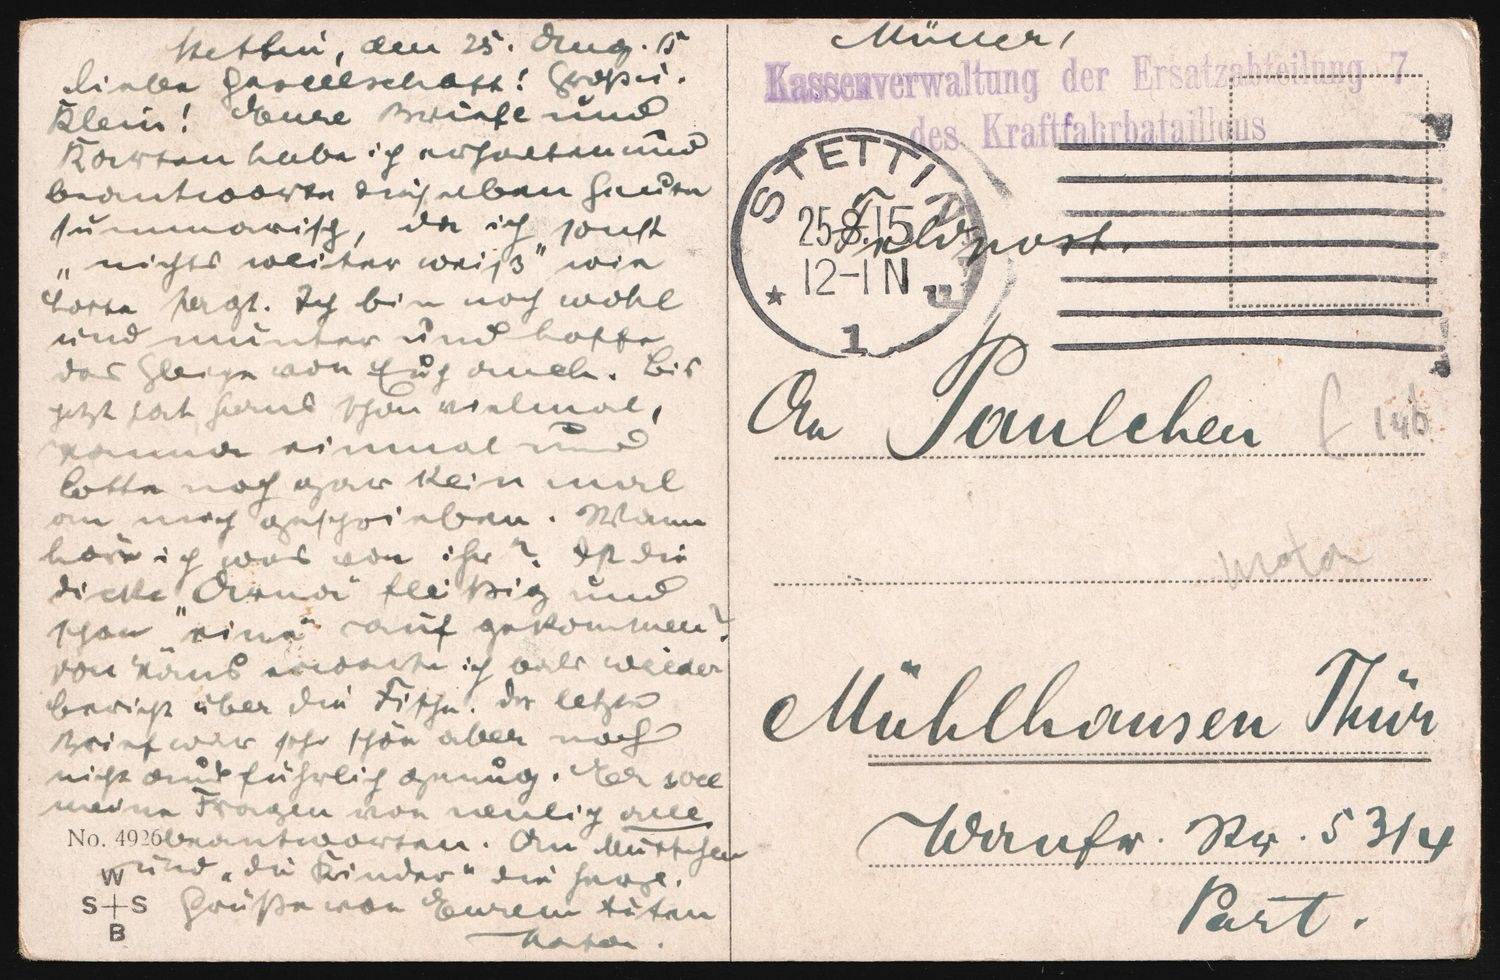 Stettin, den 25. Aug. 15
Liebe Gesellschaft! Groß u.
Klein! Eure Briefe und
Karten habe ich erhalten und
beantworte dieselben heute
summarisch, da ich sonst
„nichts weiter weiß" wie
Lotte sagt. Ich bin noch wohl
und munter und hoffe
das Gleiche von Euch auch. Bis
jetzt hat Hans schon vielmal,
einmal und
Lotte noch gar kein mal
an mich geschrieben. Wann
höre ich was von ihr? Ist die
dicke Erna fleißig und
schon "eine" rauf gekommen?
Von Hans erwarte ich bald wieder
Bericht über die Fische. Der letzte
Brief war sehr schön aber noch
nicht ausführlich genug. Er soll
meine Fragen von neulich alle
beantworten. An Muttchen
und „die Kinder" die herzl.
Grüße von Eurem
No. 4926
W
S S
B
Müller,
Kassenverwaltung der Ersatzabteilung 7
des Kraftfahrbataillons
STETTIN
25.8.15
12-1 N
1
Feldpost.
An Paulchen
146
Mühlhausen Thür
Wanfr. Str. 53/4
Part.